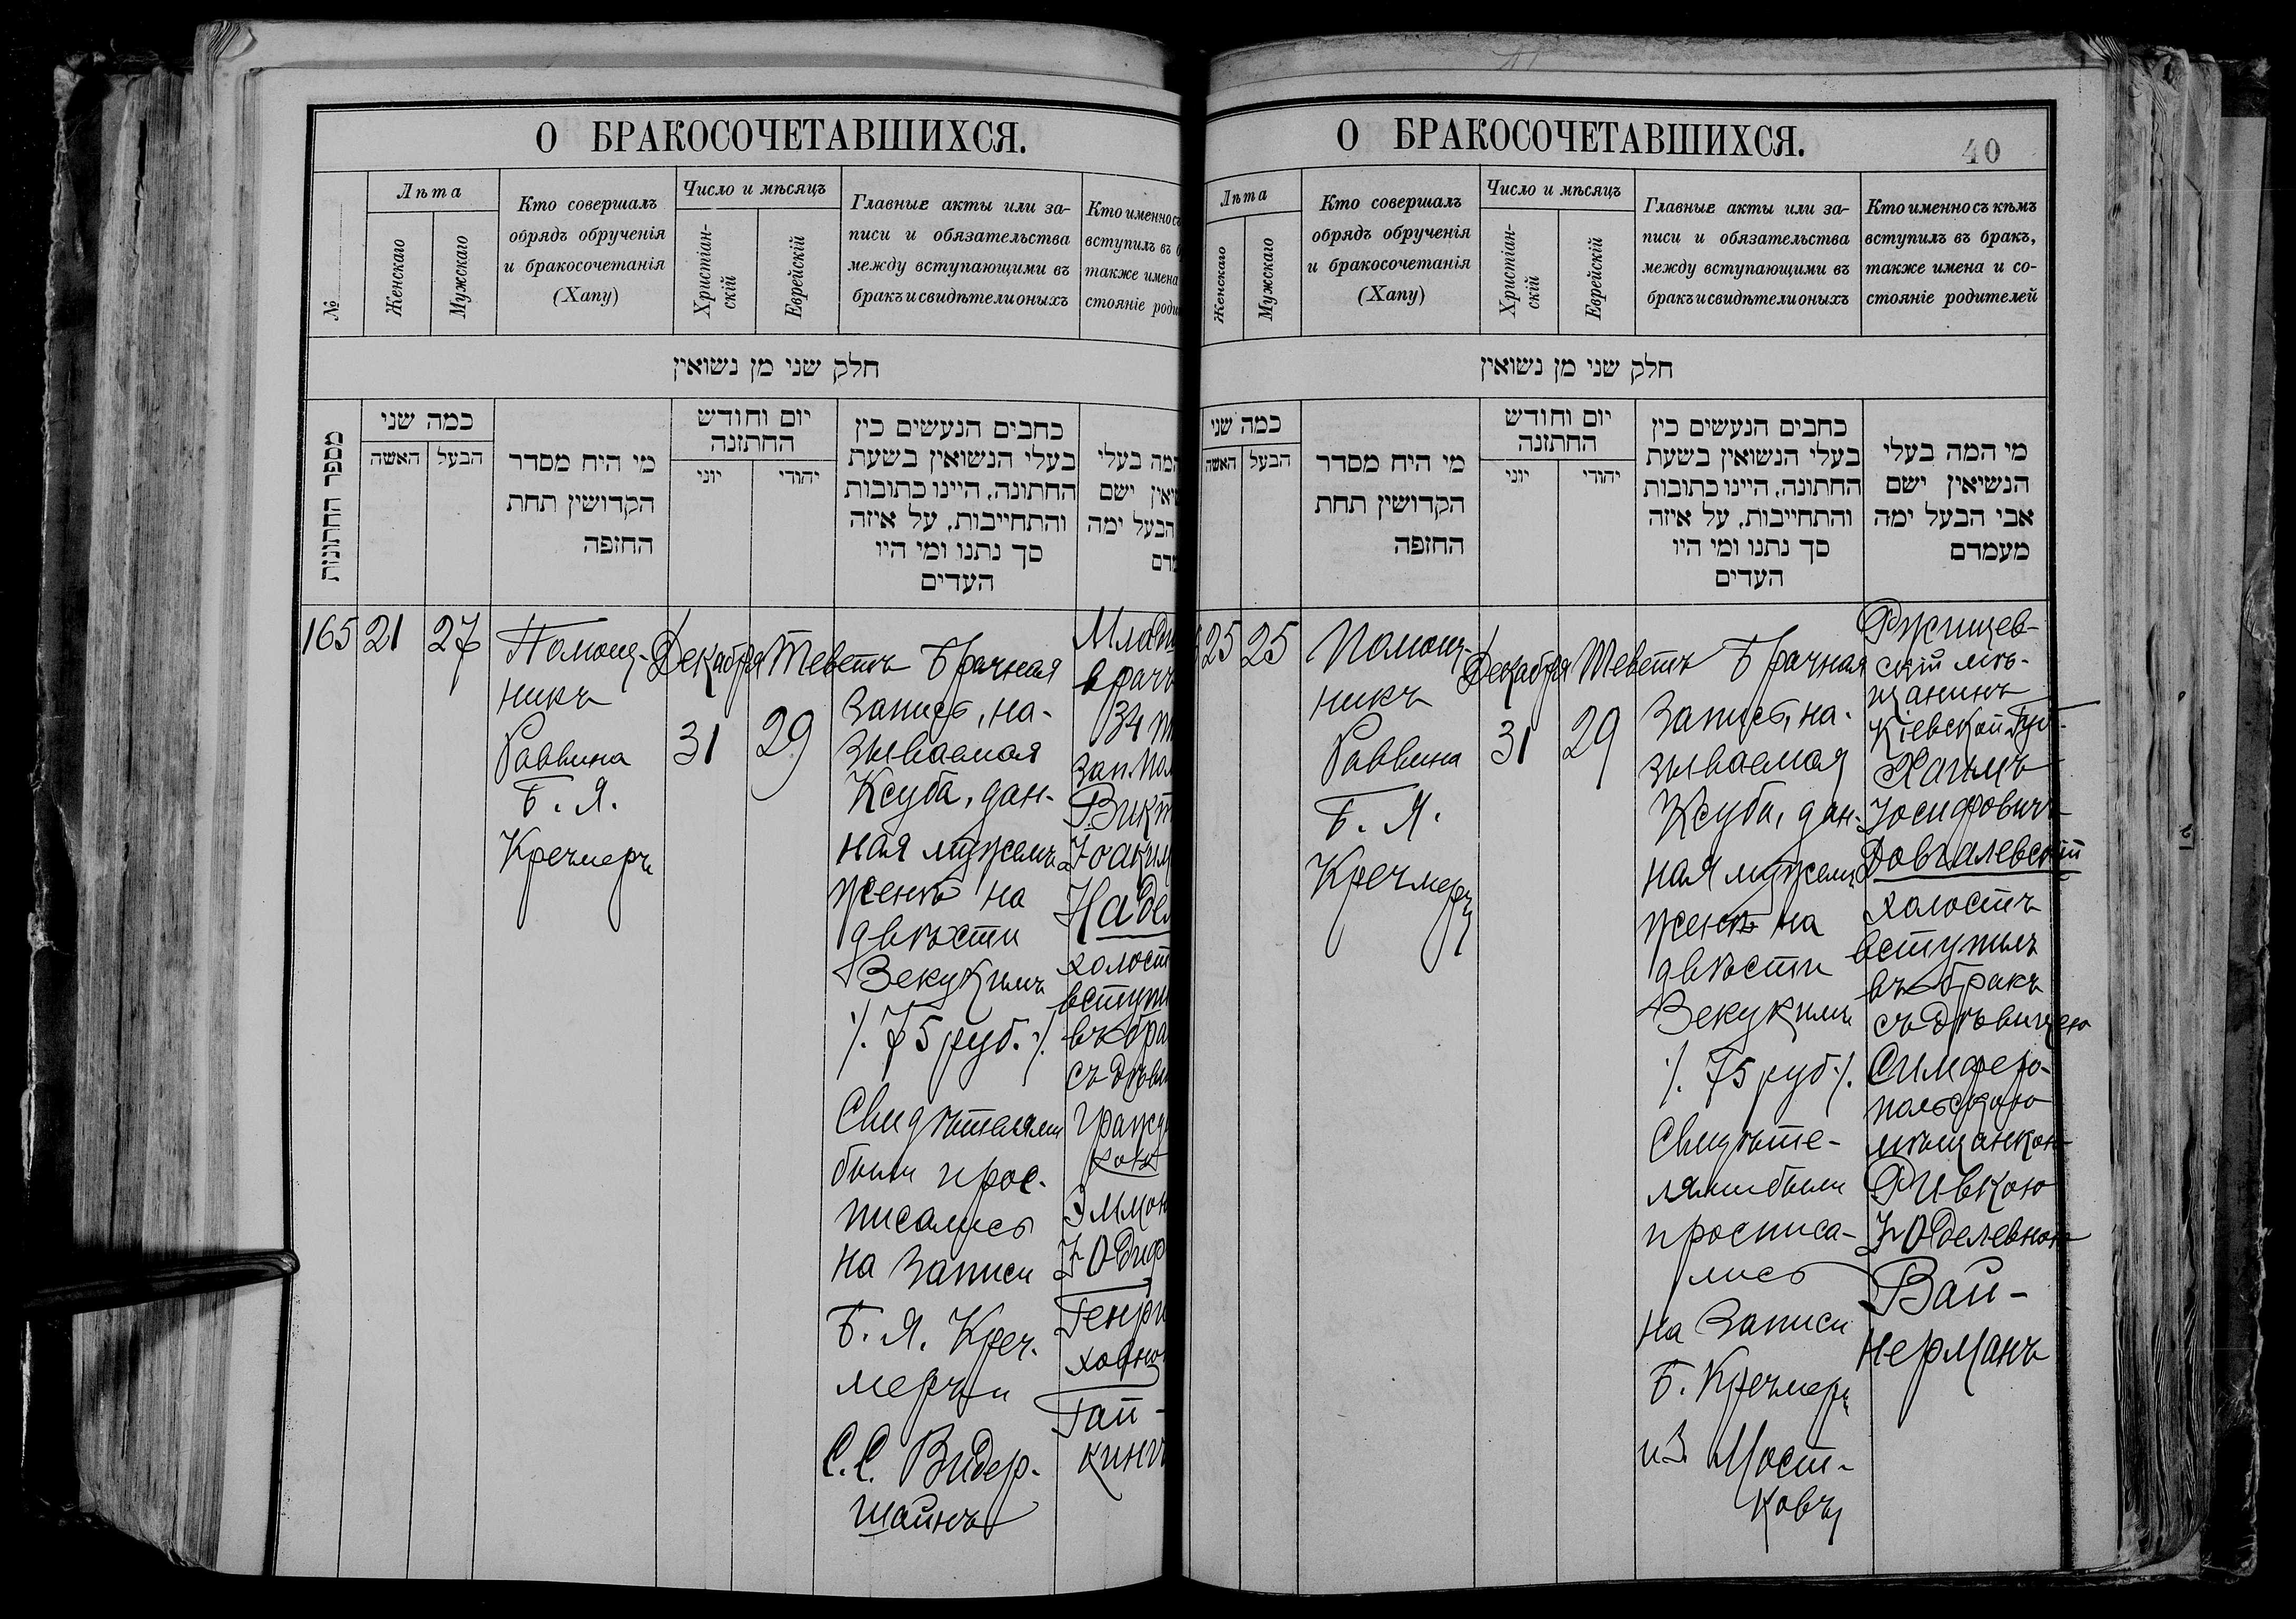 О БРАКОСОЧЕТАВШИХСЯ.
№
Лѣта
Женскаго
Мужскаго
Кто совершалъ
обрядъ обрученія
и бракосочетанія
(Хапу)
Число и мѣсяцъ
Христіан-
скій
Еврейскій
Главные акты или за-
писи и обязательства
между вступающими въ
бракъ и свидѣтели оныхъ
Кто именно съ
вступилъ въ б
также имена
стояніе роди
חלק שני מן נשואין
מספר החתונות
כמה שני
האשה
הבעל
מי היח מסדר
הקדושין תחת
החופה
יום וחודש
החתונה
יוני
יהודי
כתבים הנעשים בין
בעלי הנשואין בשעת
החתונה, היינו כתובות
והתחייבות, על איזה
סך נתנו ומי היו
העדים
המה בעלי
שיאין ישם
הבעל ימה
מדם
165
21
27
Помощ-
никъ
Раввина
Б. Я.
Кречмеръ
Декабря
31
Теветъ
29
Брачная
запись, на-
зываемая
Ксуба, дан-
ная мужемъ
женѣ на
двѣсти
Зекукимъ
/. 75 руб. /.
Свидѣтелями
были и рос-
писались
на записи
Б. Я. Креч-
меръ и
С. С. Видер-
шайнъ
врачъ
34
зап.
Викт
Іоаким
Надел
холост
вступи
въ бра
съ дѣви
гражд
кою
Эммою
Юдиф
Генри
ховно
Гай-
кинъ
О БРАКОСОЧЕТАВШИХСЯ.
40
Лѣта
Женскаго
Мужскаго
Кто совершалъ
обрядъ обрученія
и бракосочетанія
(Хапу)
Число и мѣсяцъ
Христіан-
скій
Еврейскій
Главные акты или за-
писи и обязательства
между вступающими въ
бракъ и свидѣтели оныхъ
Кто именно съ кѣмъ
вступилъ въ бракъ,
также имена и со-
стояніе родителей
חלק שני מן נשואין
כמה שני
האשה
הבעל
מי היח מסדר
הקדושין תחת
החופה
יום וחודש
החתונה
יוני
יהודי
כתבים הנעשים בין
בעלי הנשואין בשעת
החתונה, היינו כתובות
והתחייבות, על איזה
סך נתנו ומי היו
העדים
מי המה בעלי
הנשיאין ישם
אבי הבעל ימה
מעמדם
25
25
Помощ-
никъ
Раввина
Б. Я.
Кречмеръ
Декабря
31
Теветъ
29
Брачная
запись, на-
зываемая
Ксуба, дан-
ная мужемъ
женѣ на
двѣсти
Зекукимъ
/. 75 руб. /.
Свидѣте-
лями были
и росписа-
лись
на записи
Б. Кречмеръ
и З. Мост-
ковъ
Ржищев-
скій мѣ-
щанинъ
Кіевской Губ.
Хаимъ
Іосифовичъ
Довгалевскій
холостъ
вступилъ
въ бракъ
съ дѣвицею
Симферо-
польскою
мѣщанкою
Ривкою
Юделевною
Вай-
нерманъ